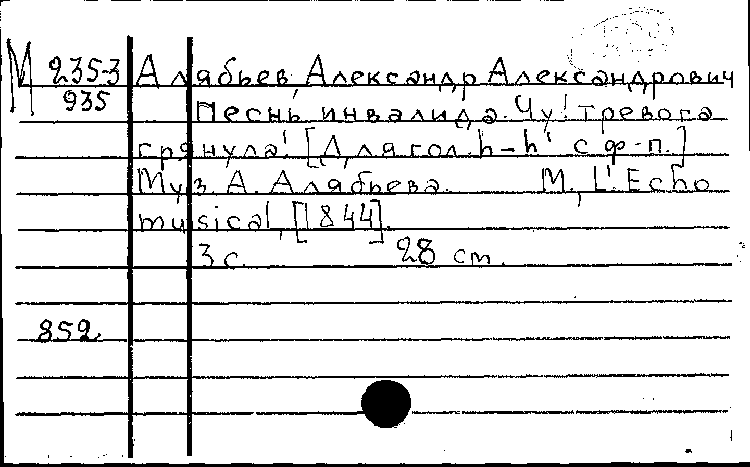 М 235-3 Алябьев, Александр Александрович
935 Песнь инвалида. Чу! тревога
грянула! [Для гол. h-h' с ф-п.]
Муз. А. Алябьева. М., L'Echo
musical, [1844].
3 с. 28 см.
852